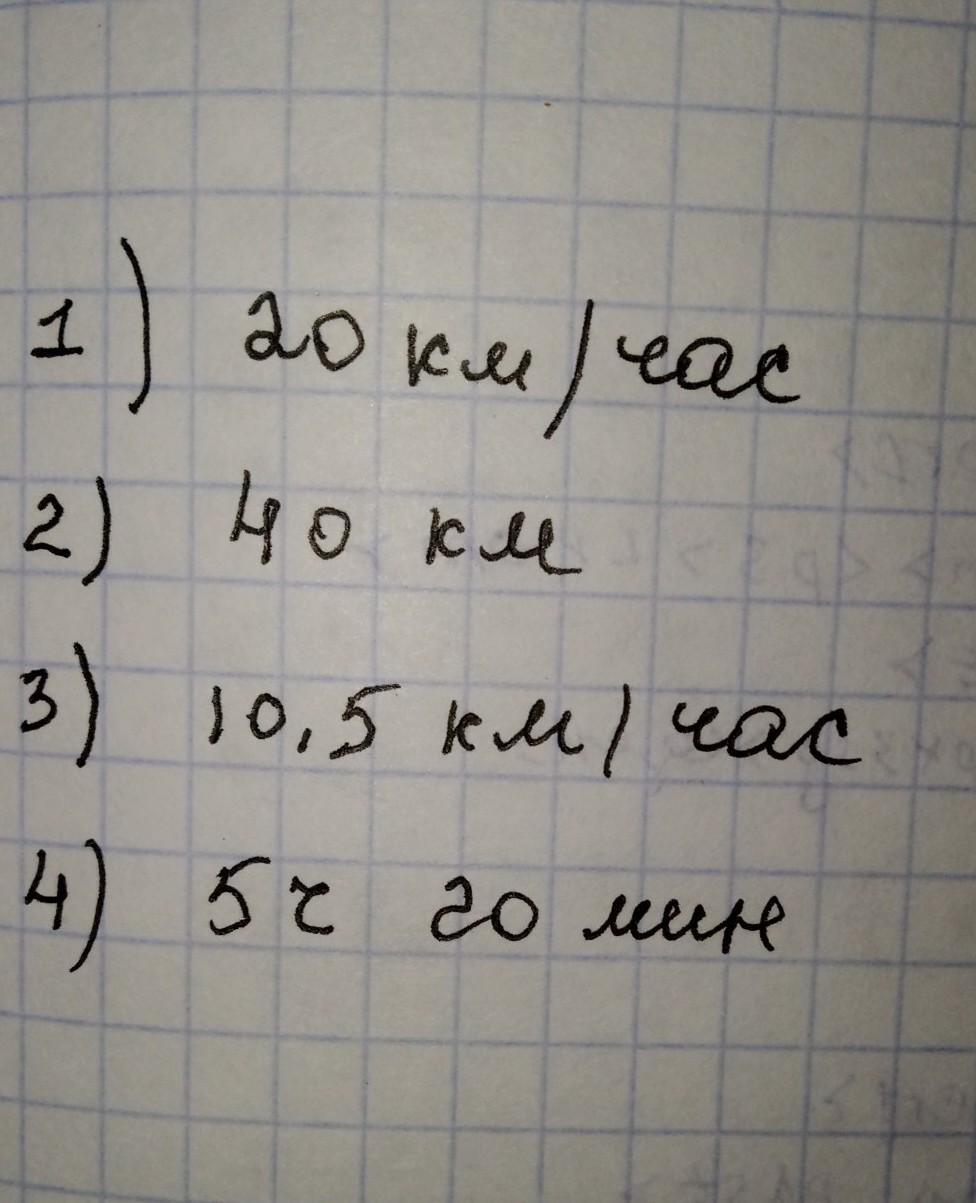 1) 20 км/час
2) 40 км
3) 10,5 км/час
4) 5ч 20 мин